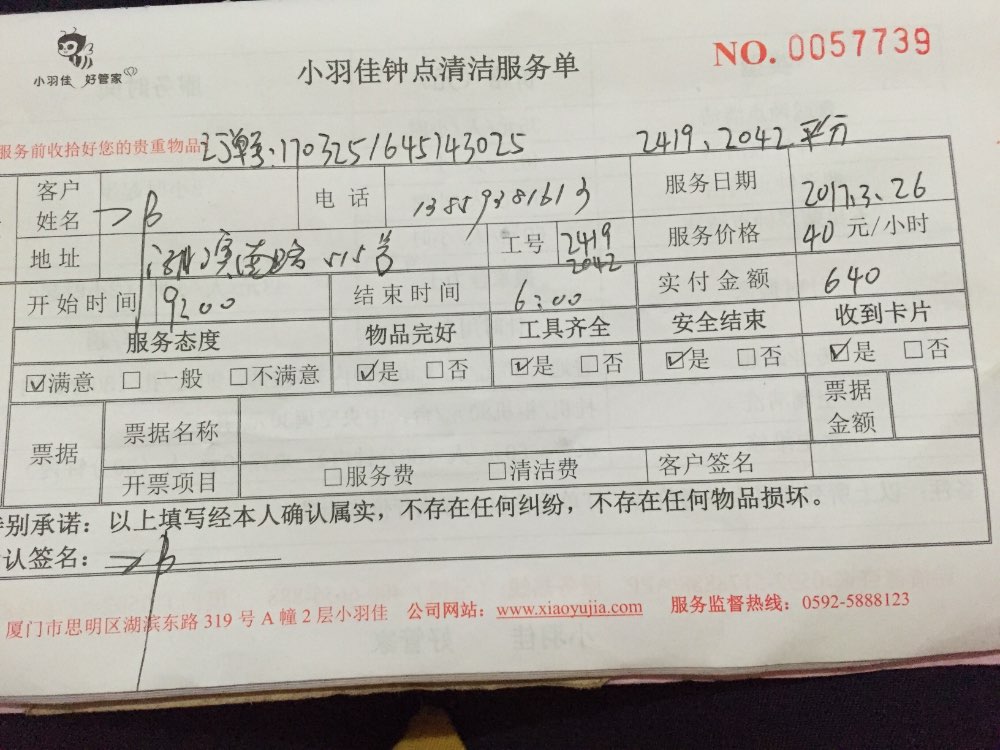 小羽佳 好管家
小羽佳钟点清洁服务单
NO. 0057739
服务前收拾好您的贵重物品
订单号:1703251645743025
2419、2042平分
客户姓名
电话 13859381613
服务日期 2017.3.26
地址 湖滨南路515号
工号 2419 2042
服务价格 40 元/小时
开始时间 9:00
结束时间 6:00
实付金额 640
服务态度 物品完好 工具齐全 安全结束 收到卡片
☑满意 □一般 □不满意 ☑是 □否 ☑是 □否 ☑是 □否 ☑是 □否
票据 票据名称 票据金额
开票项目 □服务费 □清洁费 客户签名
别承诺：以上填写经本人确认属实，不存在任何纠纷，不存在任何物品损坏。
认签名：
厦门市思明区湖滨东路 319 号 A 幢 2 层小羽佳 公司网站：www.xiaoyujia.com 服务监督热线：0592-5888123